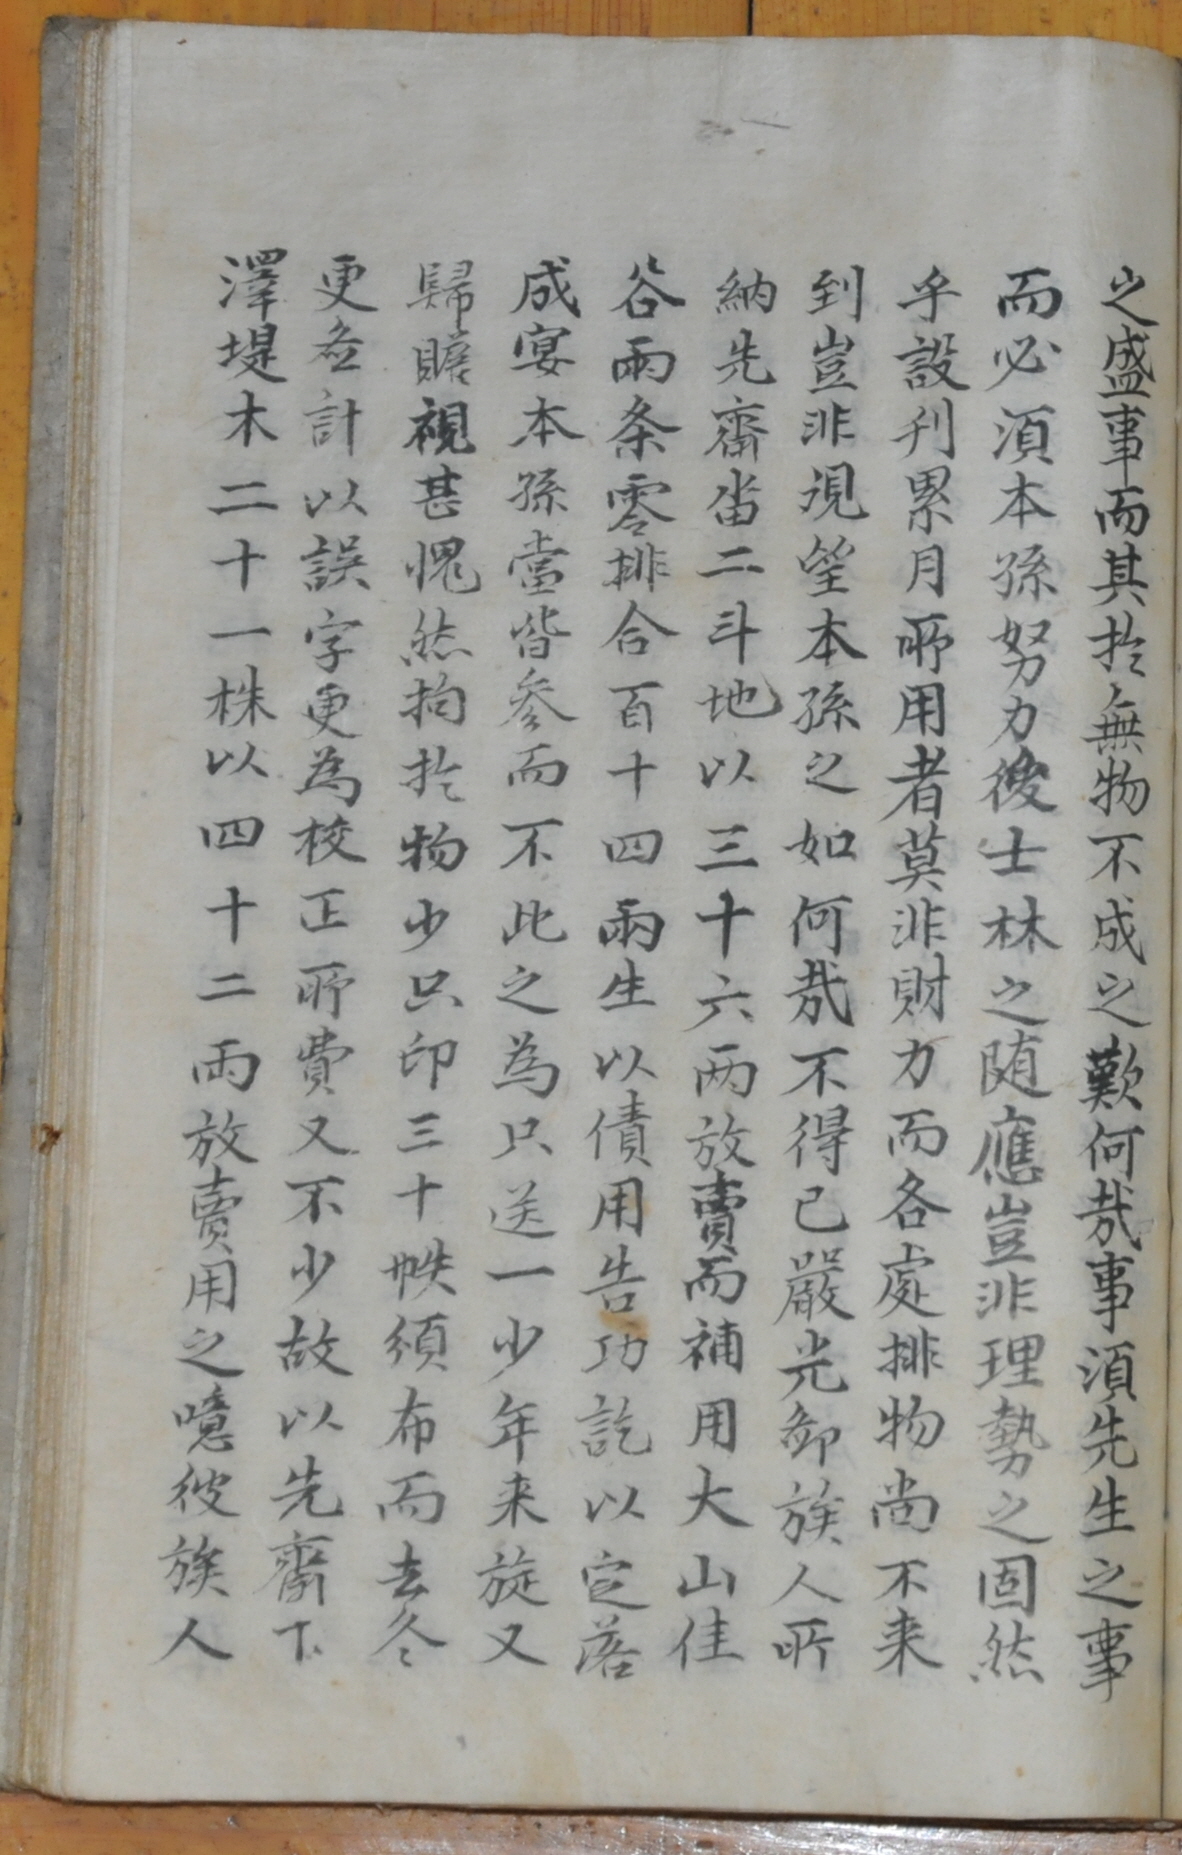 之盛事而其於無物不成之歎何哉事湏先生之事
而必湏本孫努力後士林之随應豈非理勢之固然
乎設刋累月所用者莫非財力而各處排物尚不来
到豈非視望本孫之如何哉不得已嚴光卸族人所
納先齋畓二斗地以三十六両放賣而補用大山佳
谷兩条零排合百十四兩生以債用告功訖以定落
成宴本孫當皆參而不此之為只送一少年来旋又
歸瞻視甚愧然拘於物少只印三十帙須布而去冬
更丝計以誤字更為校正所費又不少故以先齋下
澤堤木二十一株以四十二両放賣用之噫彼族人